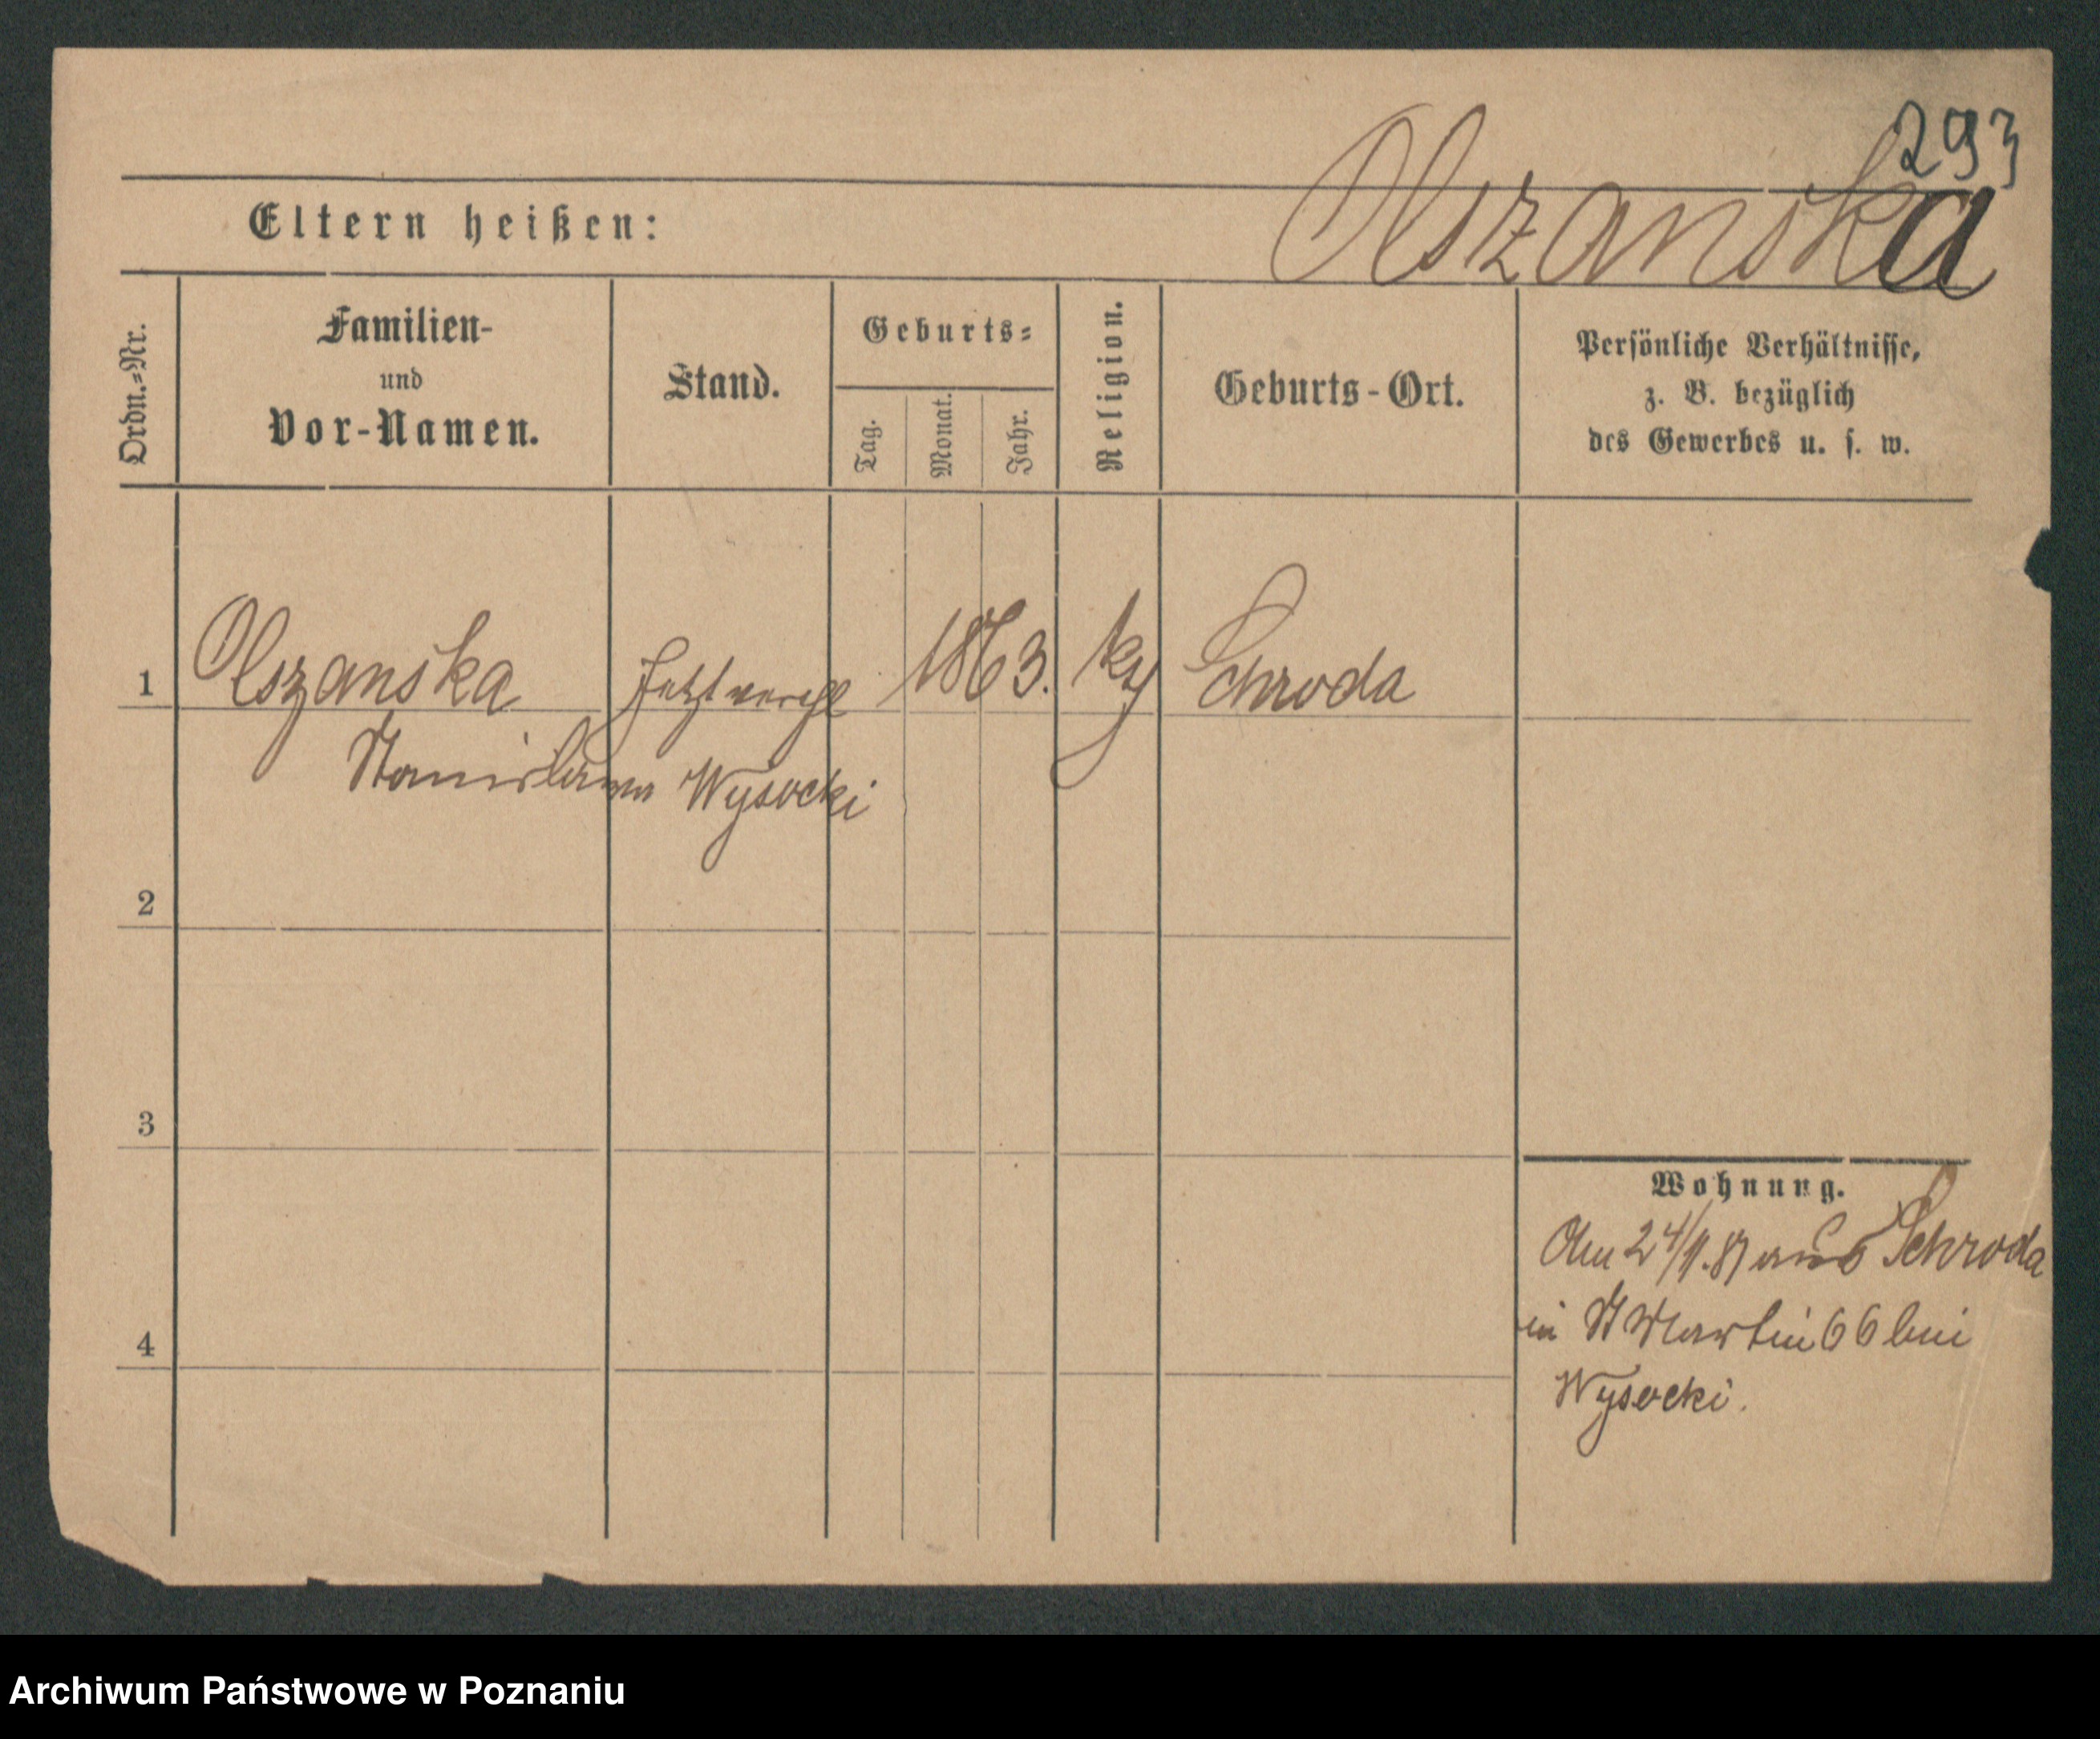 293
Olszanska
Eltern heißen:
Ordn.-Nr.
Familien-
und
Vor-Namen.
Stand.
Geburts-
Tag.
Monat.
Jahr.
Religion.
Geburts-Ort.
Persönliche Verhältnisse,
z. B. bezüglich
des Gewerbes u. s. w.
1 Olszanska Jetzt verehl 1863. Schroda
Stanislawa Wysocki
2
3
4
Wohnung.
Am 24/ aus Schroda
in St Martin 66 bei
Wysocki.
Archiwum Państwowe w Poznaniu